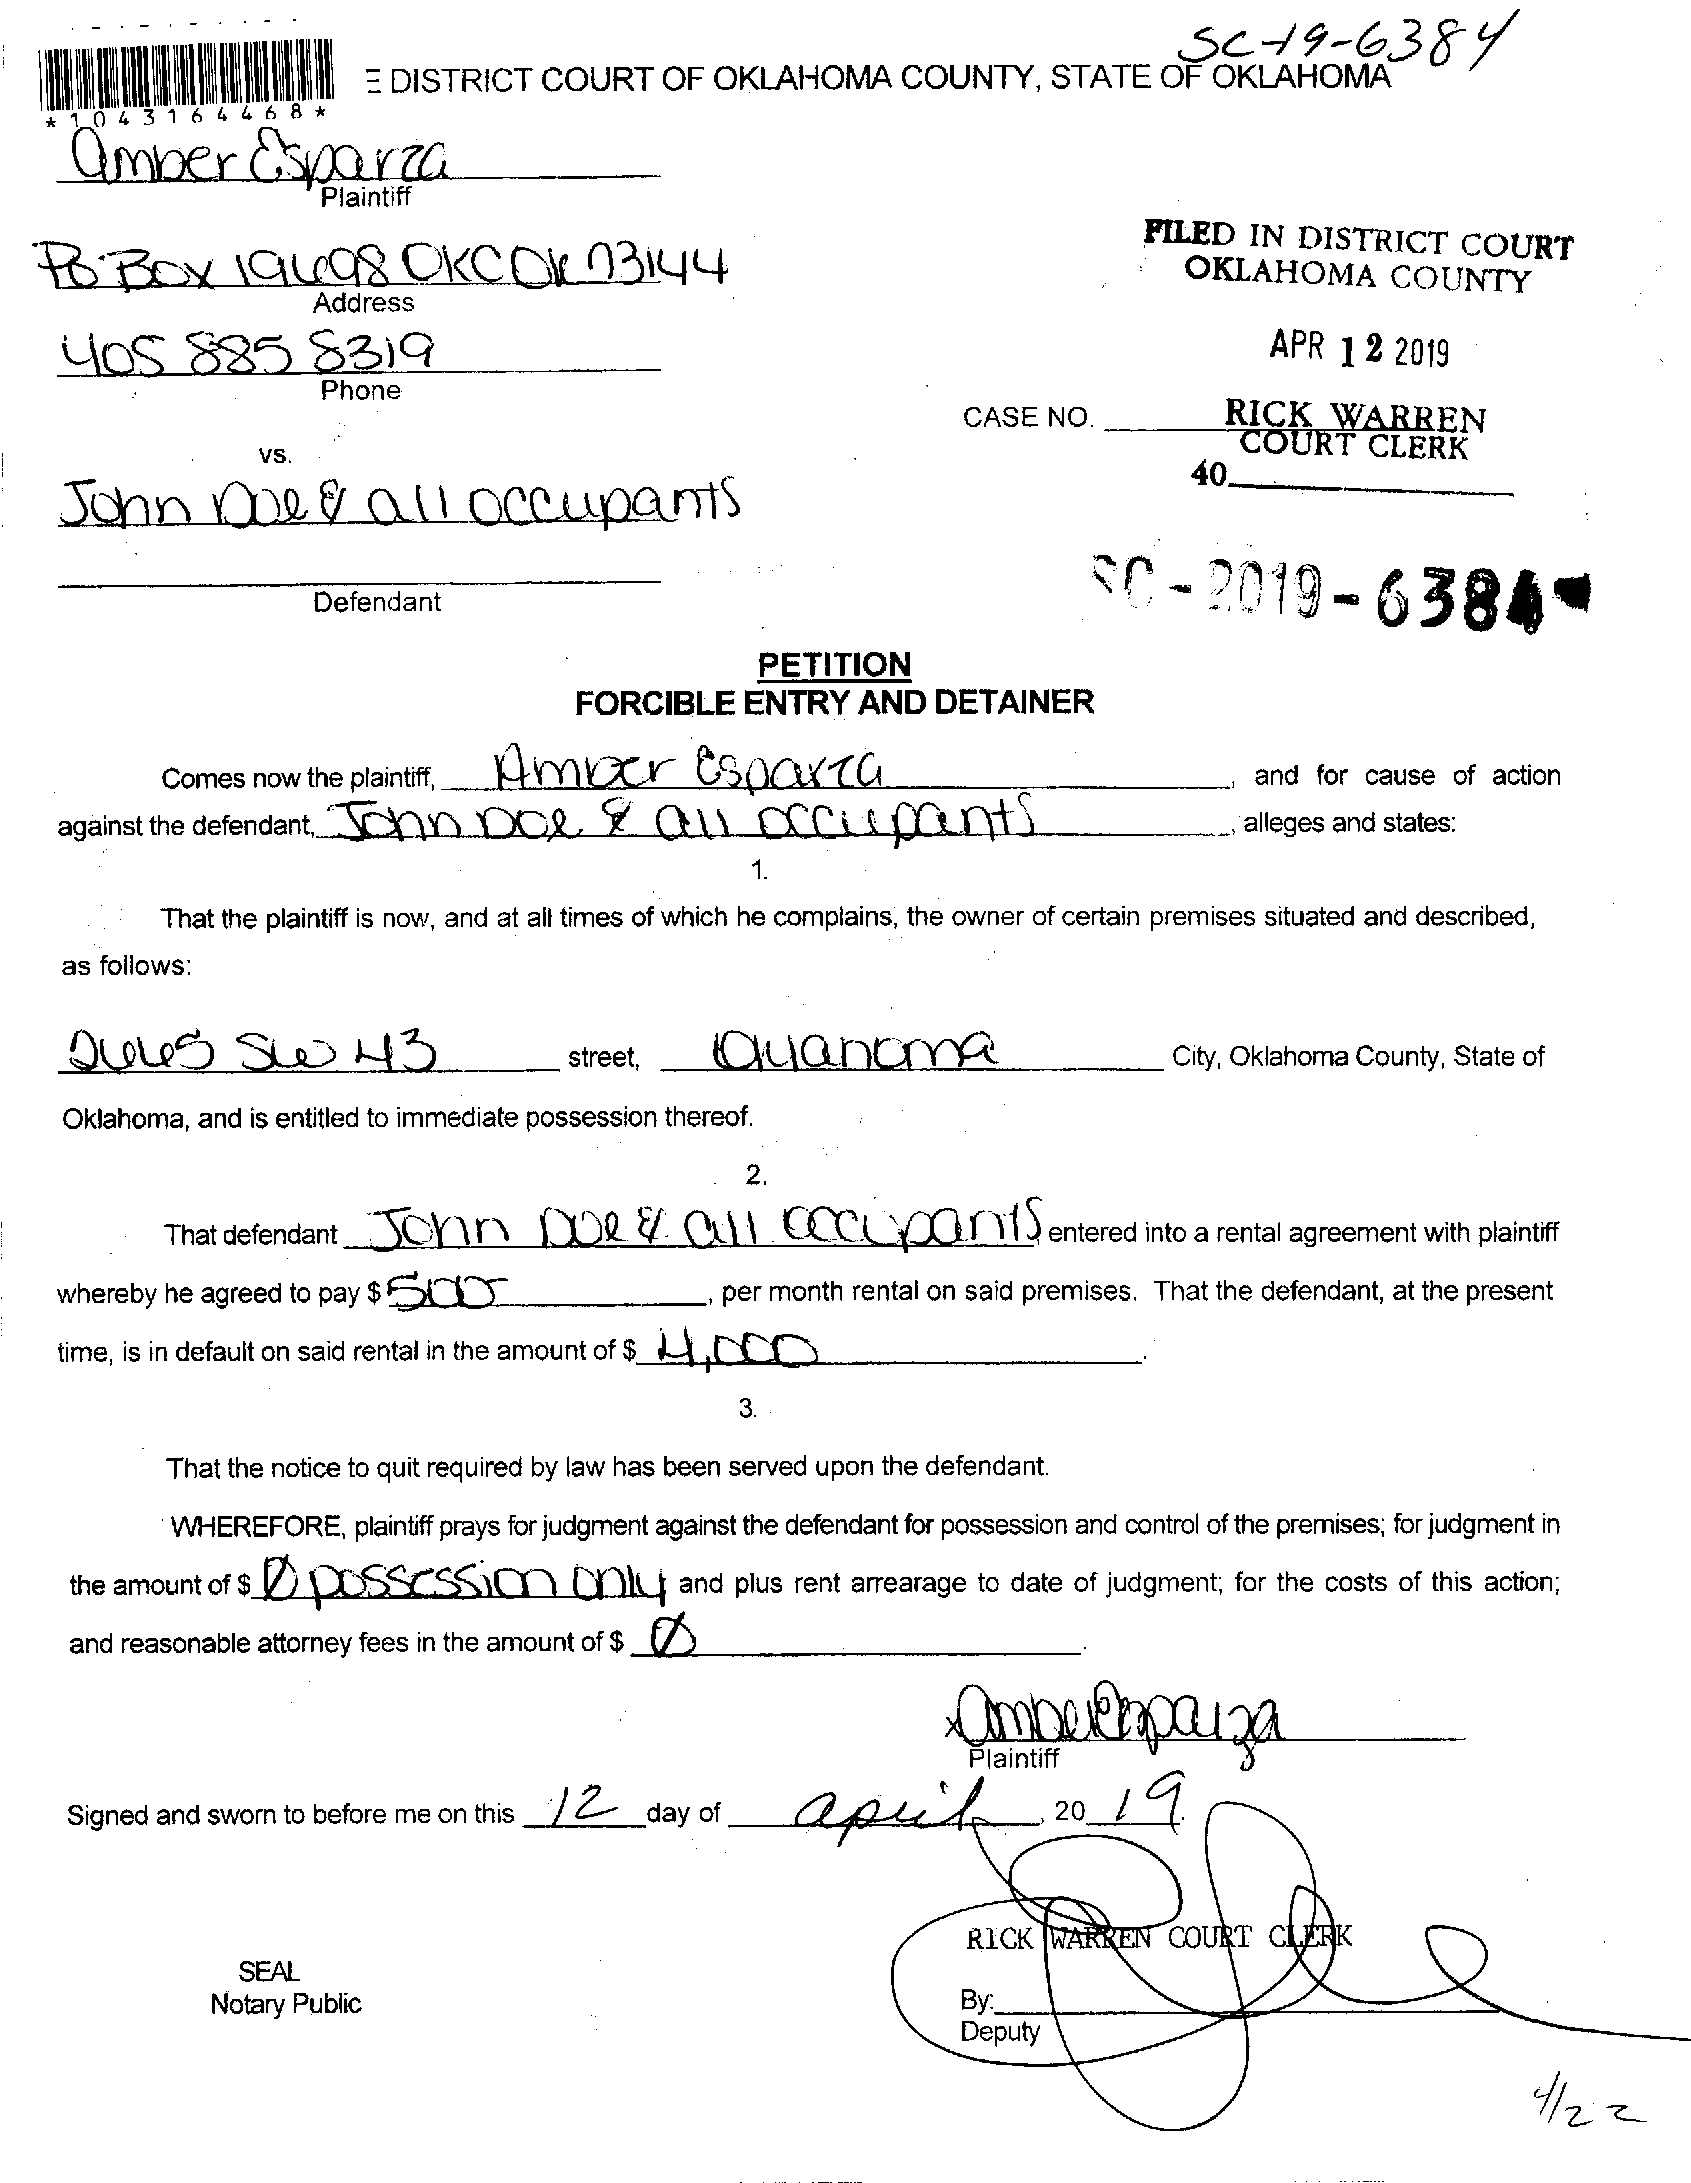 SC-19-6384
E DISTRICT COURT OF OKLAHOMA COUNTY, STATE OF OKLAHOMA
*1043164468*
Amber Esparza
Plaintiff
PO Box 19698 OKC OK 73144
Address
405 885 8319
Phone
vs.
John Doe & all occupants
Defendant
FILED IN DISTRICT COURT
OKLAHOMA COUNTY
APR 12 2019
CASE NO.
RICK WARREN
COURT CLERK
40
SC-2019-6384
PETITION
FORCIBLE ENTRY AND DETAINER
Comes now the plaintiff, Amber Esparza, and for cause of action
against the defendant, John Doe & all occupants, alleges and states:
1.
That the plaintiff is now, and at all times of which he complains, the owner of certain premises situated and described,
as follows:
SW 43 street, City, Oklahoma County, State of
Oklahoma, and is entitled to immediate possession thereof.
2.
That defendant John Doe & all occupants entered into a rental agreement with plaintiff
whereby he agreed to pay $ 500, per month rental on said premises. That the defendant, at the present
time, is in default on said rental in the amount of $ 4,000.
3.
That the notice to quit required by law has been served upon the defendant.
WHEREFORE, plaintiff prays for judgment against the defendant for possession and control of the premises; for judgment in
the amount of $ Ø possession only and plus rent arrearage to date of judgment; for the costs of this action;
and reasonable attorney fees in the amount of $ Ø.
x Amber Esparza
Plaintiff
Signed and sworn to before me on this 12 day of april, 20 19.
RICK WARREN COURT CLERK
SEAL
Notary Public
By:
Deputy
4/22